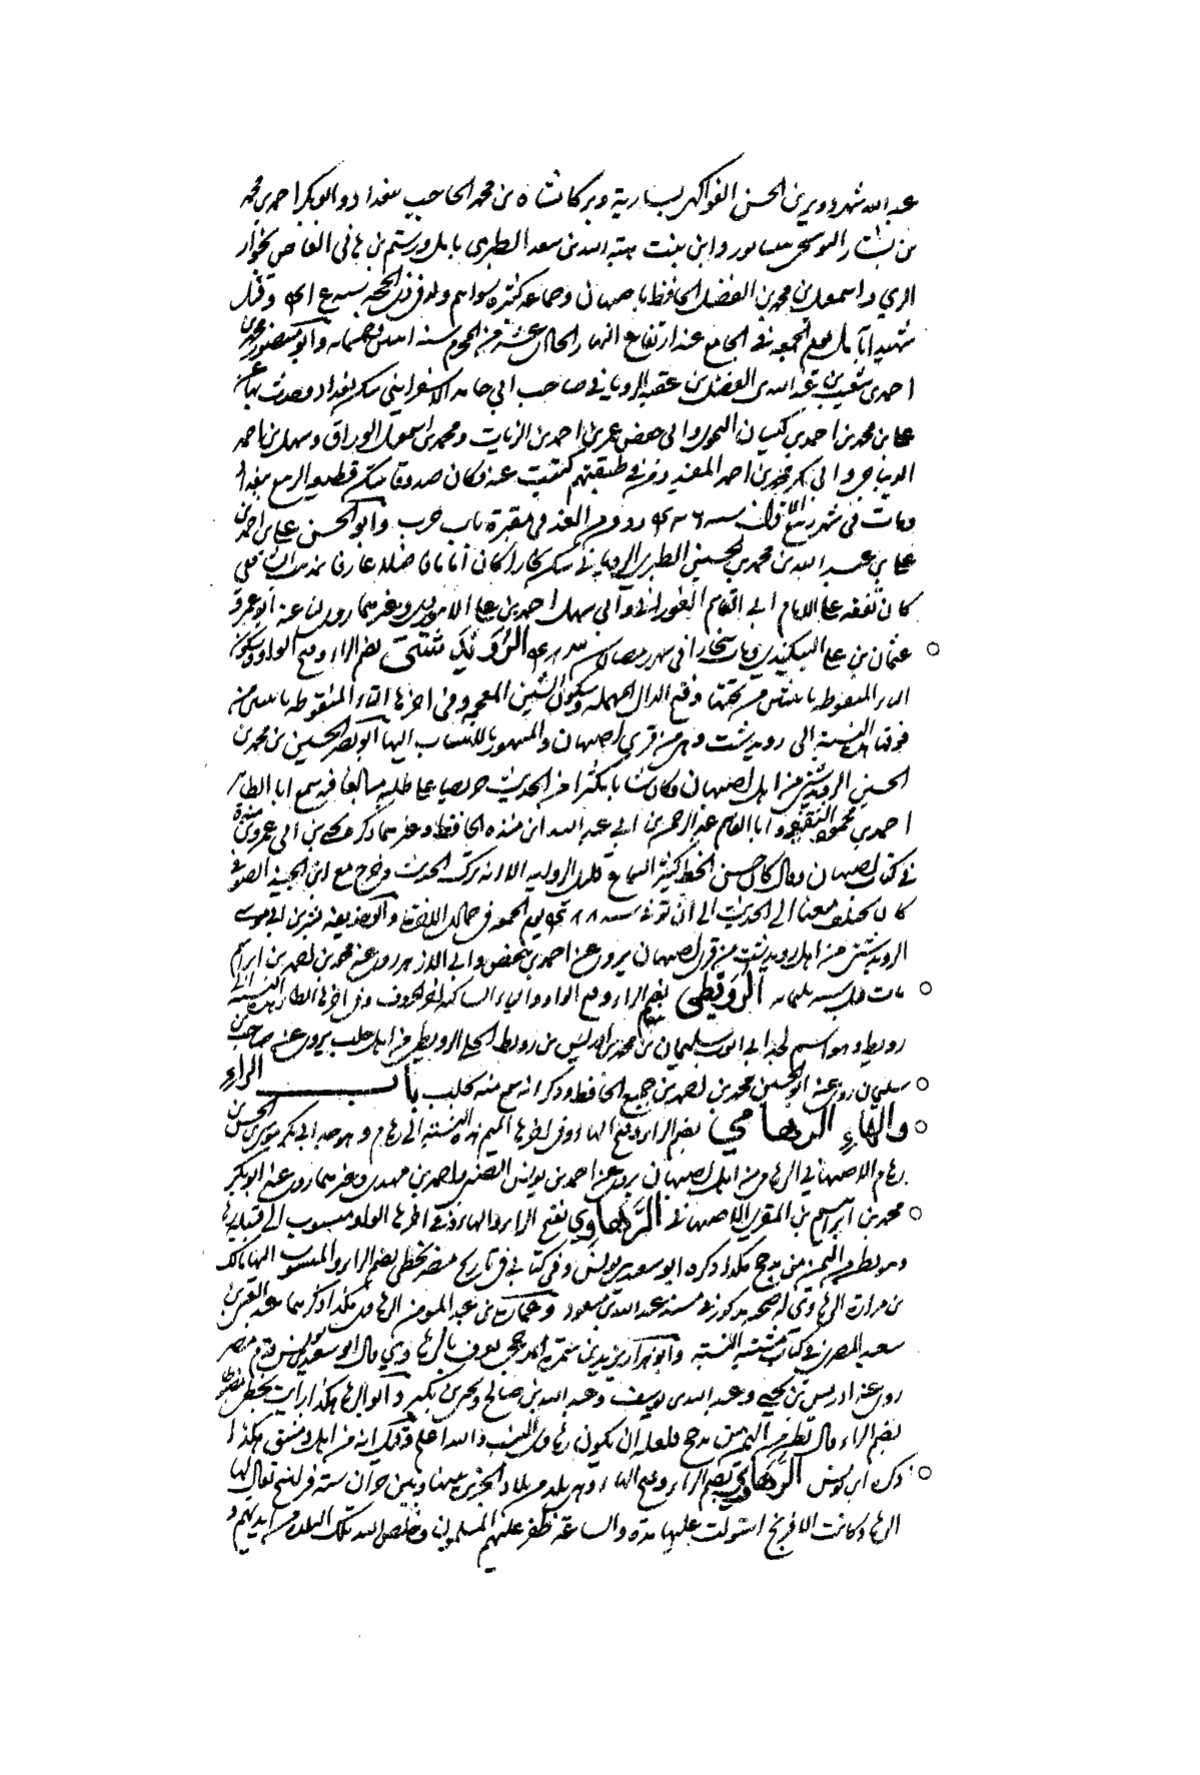 عبد الله شهردوير بن الحسن الفواكهى بسارية وبركات شاه بن محمد الحاجب ببغداد وابو بكر احمد بن محمد
بن بشار البوسنجى بنيسابور وابن بنت هبة الله بن سعد الطبرى بآمل ورستم بن هانى القاص بخوار
الري واسمعيل بن محمد بن الفضل الحافظ باصبهان وجماعة كثيرة سواهم ولد فى ذى الحجة سنة وقتل
شهيدا بآمل يوم الجمعة فى الجامع عند ارتفاع النهار الحادى عشر من المحرم سنة وخمسمايه وابو منصور محمد بن
احمد بن شعيب بن عبد الله بن الفضل بن عقبة الرويانى صاحب ابى حامد الاسفراينى سكن بغداد وحدث بها عن
على بن محمد بن احمد بن كيسان النحوى وابى حفص عمر بن احمد بن الزيات ومحمد بن اسمعيل الوراق وسهل بن احمد
الديباجى وابى بكر محمد بن احمد المفيد ومن فى طبقتهم كتبت عنه وكان صدوقا يسكن قطيعة الربيع ببغداد
ومات فى شهر ربيع الاول سنة ودفن من الغد فى مقبرة باب حرب وابو الحسن على بن احمد بن
على بن عبد الله بن محمد بن الحسين الطبرى الرويانى سكن بخارا كان اماما فاضلا عارفا بمذهب الشافعى
كان تفقه على الامام ابى القاسم الفورانى وابى سهل احمد بن على الابيوردى وغيرهما روى لنا عنه ابو عمرو
عثمان بن على البيكندى ومات ببخارا فى شهر رمضان سنة الرُوَيْدَشْتِى بضم الراء وفتح الواو وسكون
الياء المنقوطة باثنتين من تحتها وفتح الدال المهملة وسكون الشين المعجمة وفى اخرها التاء المنقوطة باثنتين من
فوقها هذه النسبة الى رويدشت وهى من قرى اصبهان والمشهور بالانتساب اليها ابو بصر الحسين بن محمد بن
الحسين الرويدشتى من اهل اصبهان وكان شابا مكثرا من الحديث حريصا على طلبه مبالغا فيه سمع ابا الطاهر
احمد بن محمود الثقفى وابا القاسم عبد الرحمن بن ابى عبد الله ابن منده الحافظ وغيرهما ذكره يحيى بن ابى عمرو بن منده
فى كتاب اصبهان وقال كان حسن الخط كثير السماع قليل الرواية الا انه ترك الحديث وخرج مع ابن الصوفى
كان يختلف معنا الى الحديث الى ان توفى سنة يوم الجمعة فى جمادى بن ابى موسى
الرويدشتى من اهل رويدشت من قرى اصبهان يروى عن احمد بن حفص وابى الازهر روى عنه محمد بن احمد بن ابراهيم
مات قبل سنة ثلثمايه الرُوَيْطِى بضم الراء وفتح الواو والياء الساكنة اخر الحروف وفى اخرها الطاء هذه النسبة الى
رويط وهو اسم لجد ابى ايوب سليمان بن محمد بن ادريس بن رويط الحلبى الرويطى من اهل حلب يروى عن صاحب بن
سليمان روى عنه ابو الحسين محمد بن احمد بن جميع الحافظ وذكر انه سمع منه بحلب باب الراء
والهاء الرُهَامِي بضم الراء وفتح الهاء وفى اخرها الميم هذه النسبة الى رهام وهو جد ابى بكر موسى بن الحسن بن
رهام الاصبهانى الرهامى من اهل اصبهان يروى عن احمد بن يونس الضبى واحمد بن مهدى وغيرهما روى عنه ابو بكر
محمد بن ابراهيم بن المقرى الاصبهانى الرَهَاوِي بفتح الراء والهاء وفى اخرها الواو منسوب الى قبيلة رها
وهو بطن من اليمن من مذحج هكذا ذكره ابو سعيد بن يونس وفى كتابى فى تاريخ مصر بخطى بضم الراء والمنتسب اليها مالك
بن مرارة الرهاوى له صحبة مذكور فى مسند عبد الله بن مسعود وعمار بن عبد المومن الرهاوى هكذا ذكرهما عبد الغنى بن
سعيد المصرى فى كتاب مشتبه النسبة وابو هزان يزيد بن سمرة المذحجى يعرف بالرهاوي قال ابو سعيد بن يونس قدم مصر
روى عنه ادريس بن يحيى وعبد الله بن يوسف وعبد الله بن صالح ويحيى بن بكير وابو الرها هكذا رايت بخطى مضبوطا
بضم الراء وقال بطن من اليمن من مذحج فلعله ان يكون رها والله اعلم وقيل انه من اهل دمشق هكذا
ذكره ابن يونس الرُهَاوِي بضم الراء وفتح الهاء وهى بلدة من بلاد الجزيرة بينها وبين حران ستة فراسخ يقال لها
الرها وكانت الافرنج استولت عليها مدة والساعة ظفر عليهم المسلمون وخلص الله تلك البلدة من ايديهم و